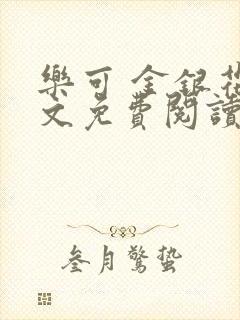 樂可 金銀花
文免費閱讀
叁月驚蟄